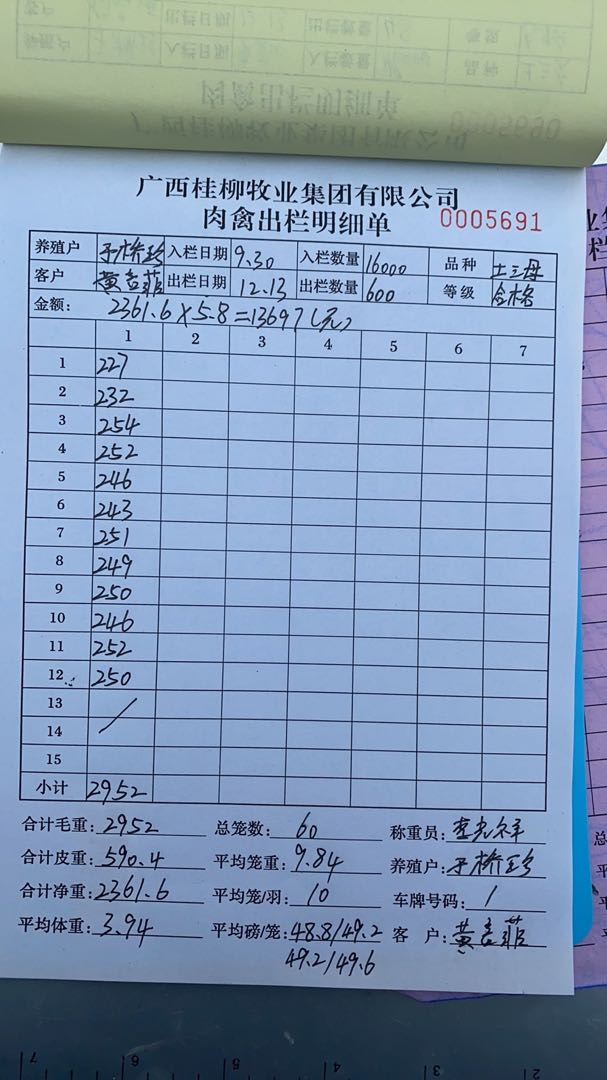 0005690
广西桂柳牧业集团有限公司
肉禽出栏明细单 0005691
养殖户 入栏日期 9.30 入栏数量 16000 品种 土三母
客户 出栏日期 12.13 出栏数量 600 等级 合格
金额: 2361.6×5.8=13697(元)
1 2 3 4 5 6 7
1 227
2 232
3 254
4 252
5 246
6 243
7 251
8 249
9 250
10 246
11 252
12 250
13
14
15
小计 2952
合计毛重: 2952 总笼数: 60 称重员:
合计皮重: 590.4 平均笼重: 9.84 养殖户:
合计净重: 2361.6 平均笼/羽: 10 车牌号码: /
平均体重: 3.94 平均磅/笼: 48.8/49.2 客 户:
49.2/49.6
7 6 5 4 3 2